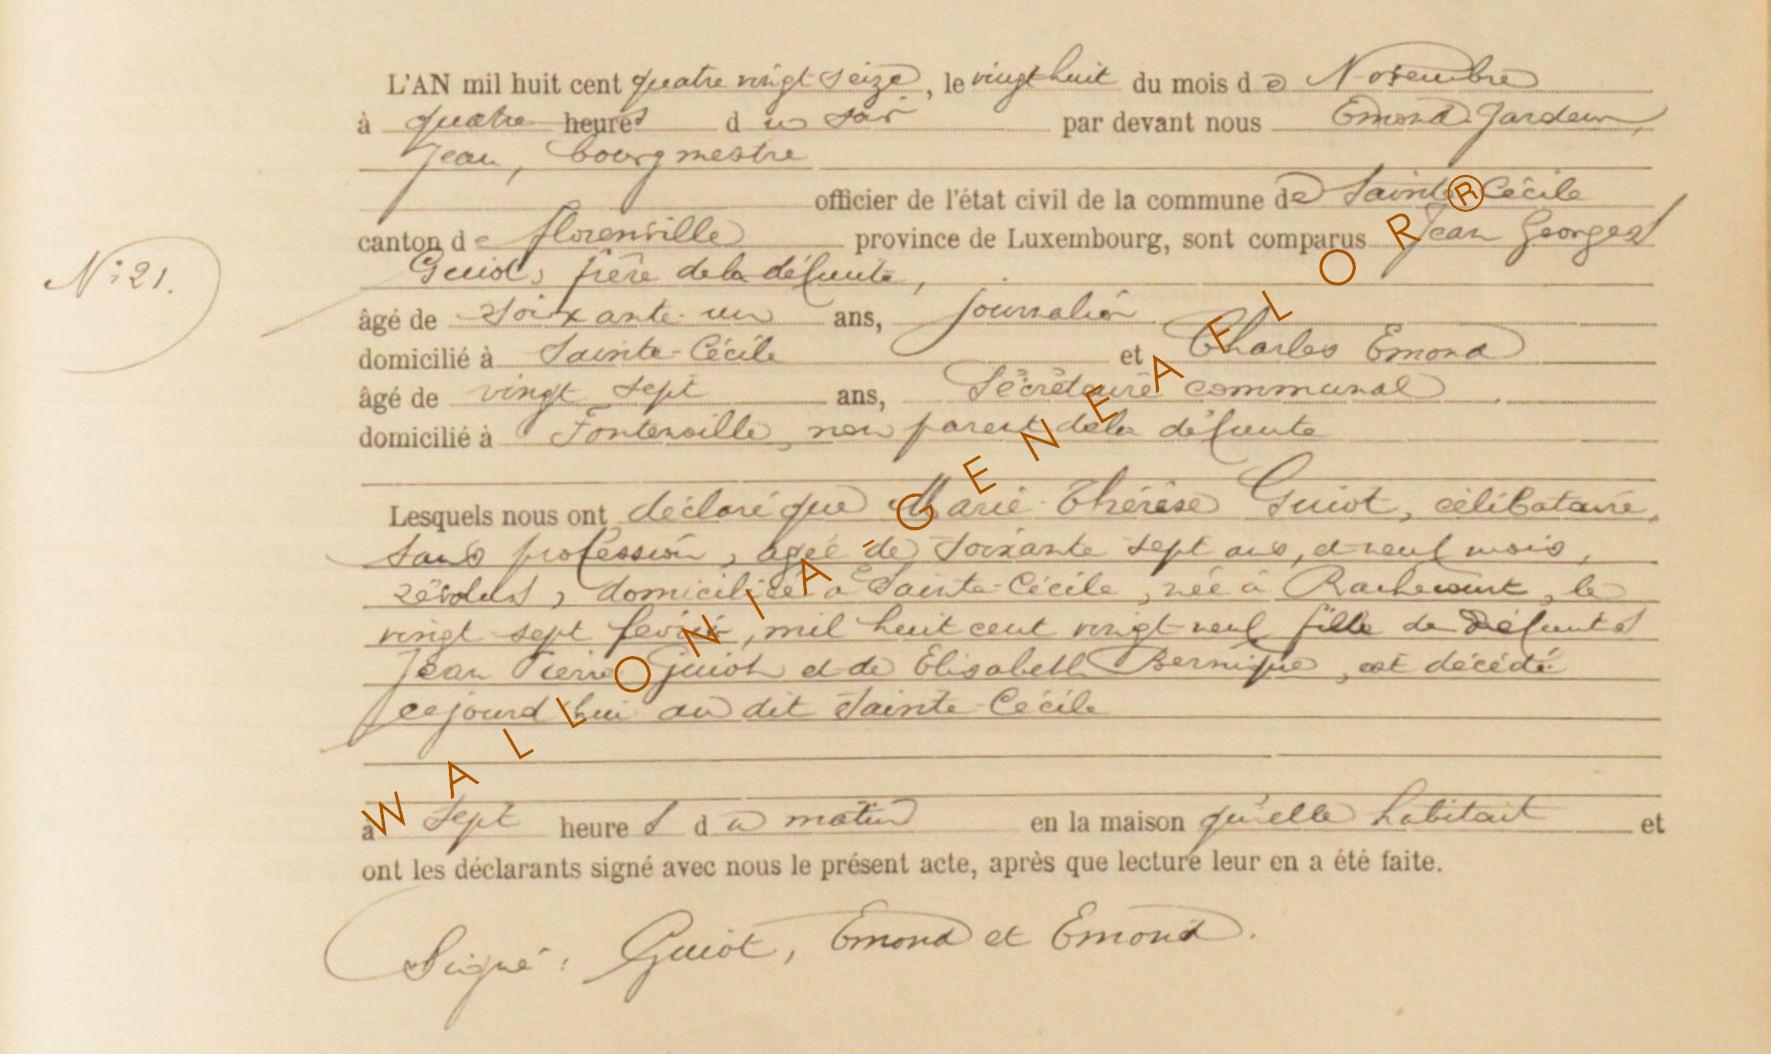 L'AN mil huit cent quatre vingt seize, le vingt huit du mois de Novembre
à quatre heures du soir par devant nous Emond Jardem,
Jean, bourgmestre
officier de l'état civil de la commune de Sainte Cécile
canton de florenville province de Luxembourg, sont comparus Jean Georges
N° 21.
Guiot, frère de la défunte,
âgé de Soixante un ans, journalier
domicilié à Sainte-Cécile et Charles Emond
âgé de vingt sept ans, Sécrétaire communal
domicilié à Fontenoille, non parent de la défunte
Lesquels nous ont déclaré que Marie Thérèse Guiot, célibataire,
sans profession, agée de Soixante sept ans, et neuf mois,
révolus, domiciliée à Sainte-Cécile, née à Rachecourt, le
vingt sept février, mil huit cent vingt neuf fille de Défunts
Jean Pierre Guiot et de Elisabeth Bernique, est décédé
cejourd'hui au dit Sainte-Cécile
à Sept heures du matin en la maison qu'elle habitait et
ont les déclarants signé avec nous le présent acte, après que lecture leur en a été faite.
Signé: Guiot, Emond et Emond.
WALLONIA-GENEAFLOR®